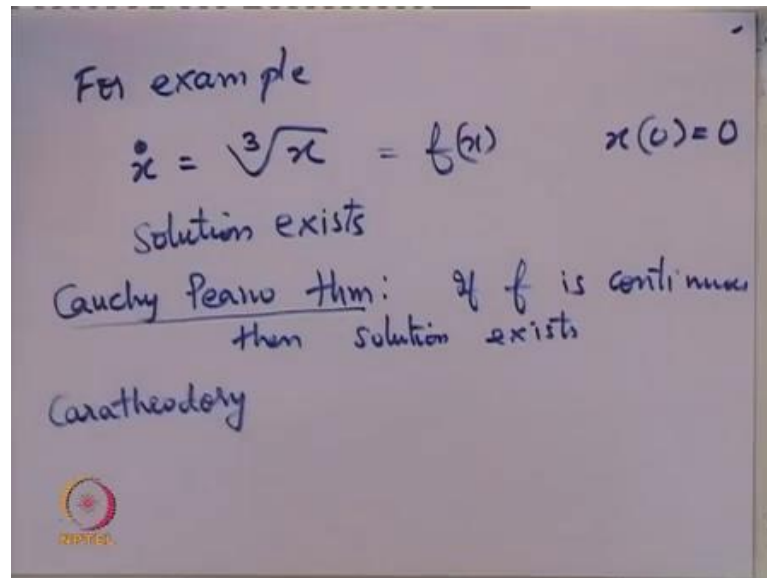 For example
ẋ = ∛x = f(x) x(0)=0
Solution exists
Cauchy Peano thm: If f is continuous
then solution exists
Caratheodory
NPTEL